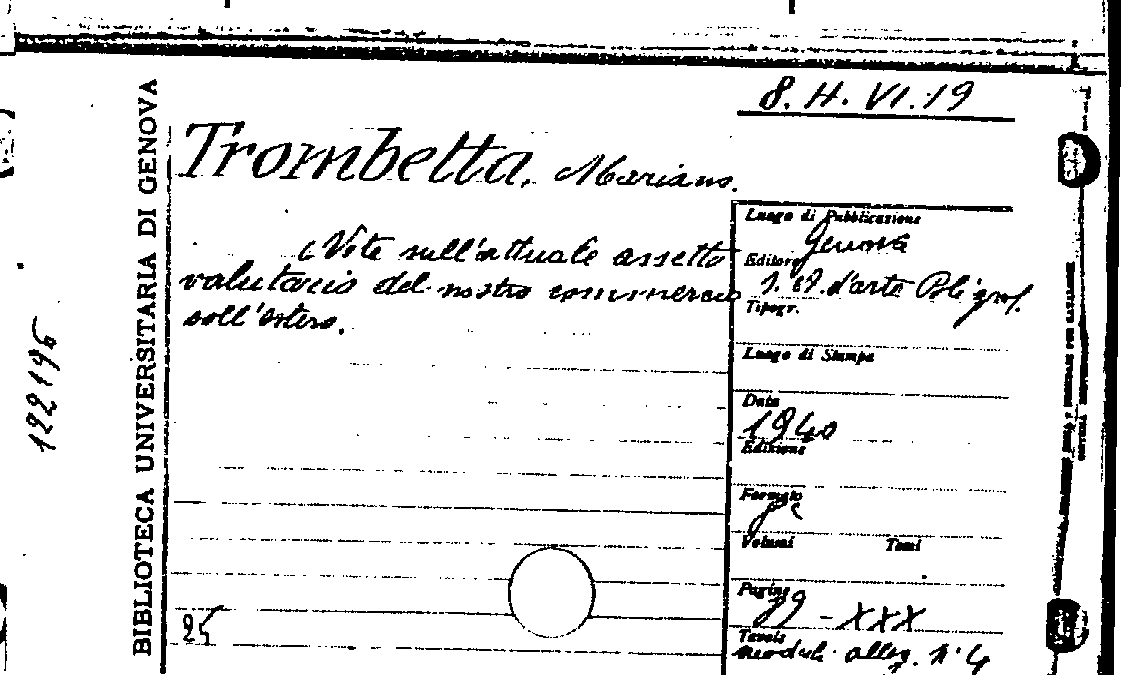 8. H. VI. 19
Trombetta, Mariano.
Note sull'attuale assetto
valutario del nostro commercio
coll'estero.
BIBLIOTECA UNIVERSITARIA DI GENOVA
122196
25
Luogo di Pubblicazione
Genova
Editore
S.A. d'arte Poligraf.
Tipogr.
Luogo di Stampa
Data
1940
Edizione
Formato
8°
Volumi Tomi
Pagine
79 - XXX
Tavole
moduli alleg. N. 4